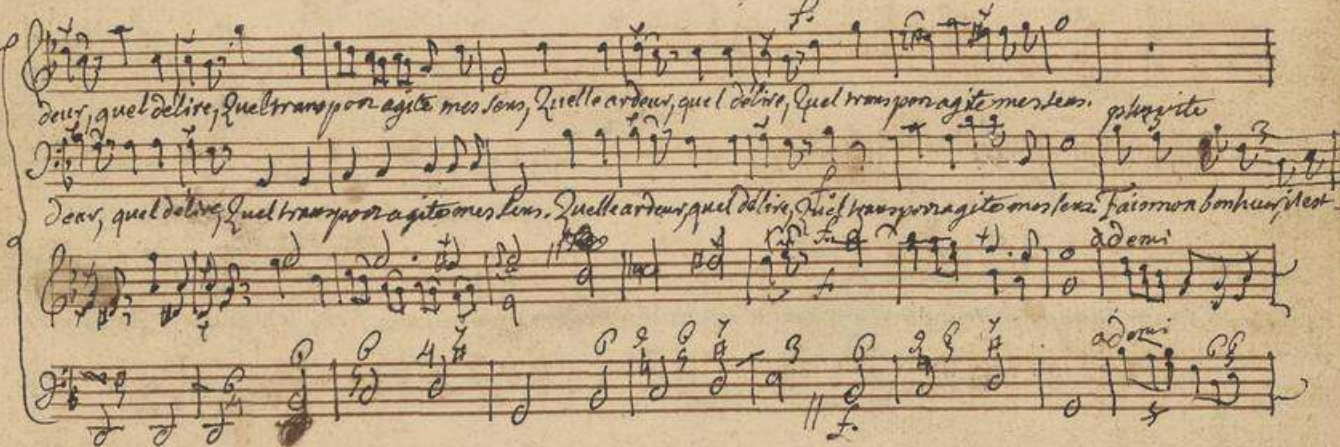 f.
deur, quel délire, Quel transport agite mes sens, Quelle ardeur, quel délire, Quel transport agite mes sens.
plus vite
3
deur, quel délire, Quel transport agite mes sens. Quelle ardeur, quel délire, Quel transport agite mes sens. Fais mon bonheur, il est
f. a demi
f.
6 6 4 7 6 9 6 7 3 6 9 5 7 a demi 6 6
6
f.